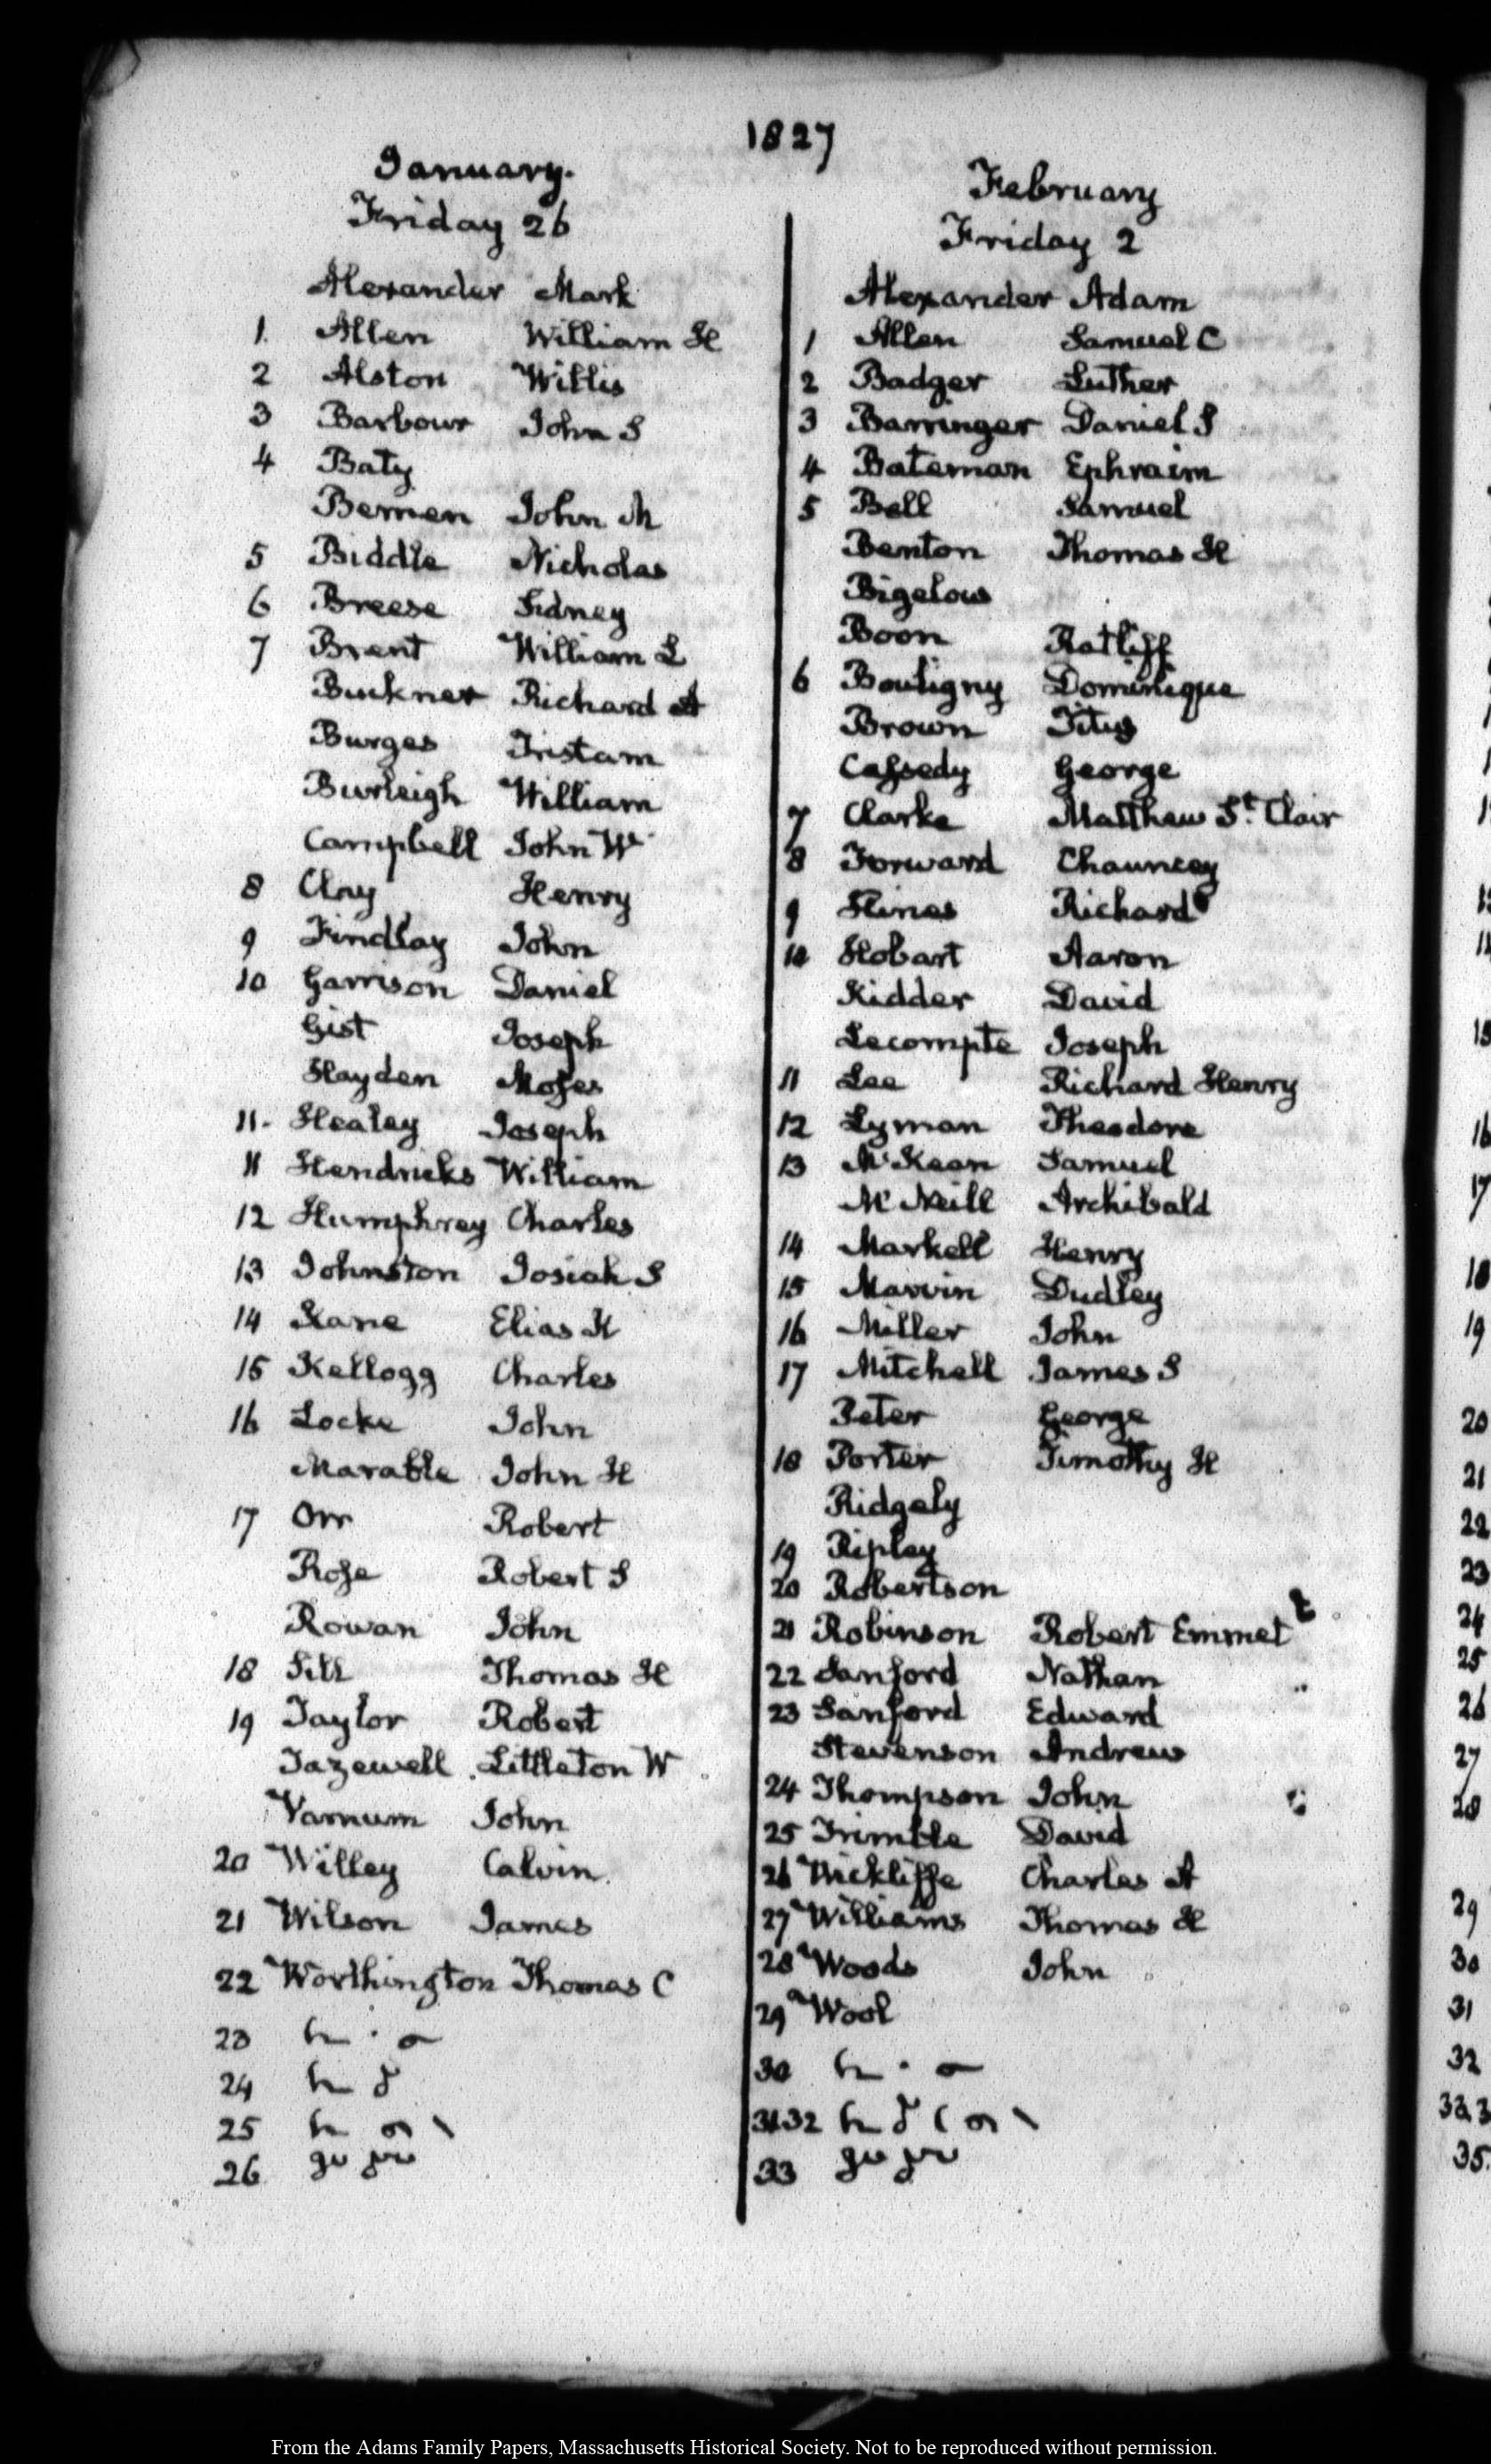 1827
January.
Friday 26
Alexander Mark
1. Allen William H
2 Alston Willis
3 Barbour John S
4 Baty
Bernien John M
5 Biddle Nicholas
6 Breese Sidney
7 Brent William L
Buckner Richard A
Burges Tristam
Burleigh William
Campbell John W
8 Clay Henry
9 Findlay John
10 Garrison Daniel
Gist Joseph
Hayden Moses
11. Healey Joseph
11 Hendricks William
12 Humphrey Charles
13 Johnston Josiah S
14 Kane Elias K
15 Kellogg Charles
16 Locke John
Marable John H
17 Orr Robert
Rose Robert S
Rowan John
18 Sill Thomas H
19 Taylor Robert
Tazewell Littleton W
Varnum John
20 Willey Calvin
21 Wilson James
22 Worthington Thomas C
23
24
25
26
February
Friday 2
Alexander Adam
1 Allen Samuel C
2 Badger Luther
3 Barringer Daniel S
4 Bateman Ephraim
5 Bell Samuel
Benton Thomas H
Bigelow
Boon Ratliff
6 Bouligny Dominique
Brown Titus
Cassedy George
7 Clarke Matthew St. Clair
8 Forward Chauncey
9 Hines Richard
10 Hobart Aaron
Kidder David
Lecompte Joseph
11 Lee Richard Henry
12 Lyman Theodore
13 McKean Samuel
McNeill Archibald
14 Markell Henry
15 Marvin Dudley
16 Miller John
17 Mitchell James S
Peter George
18 Porter Timothy H
Ridgely
19 Ripley
20 Robertson
21 Robinson Robert Emmet
22 Sanford Nathan
23 Sanford Edward
Stevenson Andrew
24 Thompson John
25 Trimble David
26 Wickliffe Charles A
27 Williams Thomas H
28 Woods John
29 Wool
30
31 32
33
From the Adams Family Papers, Massachusetts Historical Society. Not to be reproduced without permission.